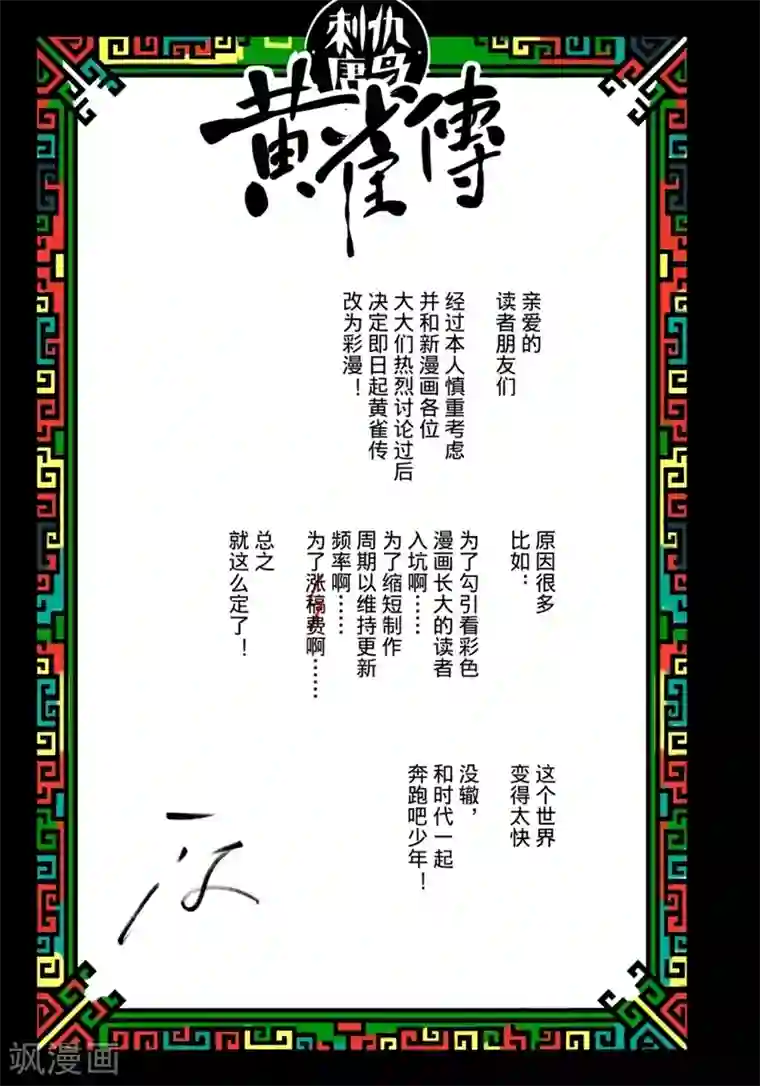 刺仇
黄雀傳
亲爱的
读者朋友们
经过本人慎重考虑
并和新漫画各位
大大们热烈讨论过后
决定即日起黄雀传
改为彩漫！
原因很多
比如…
为了勾引看彩色
漫画长大的读者
入坑啊……
为了缩短制作
周期以维持更新
频率啊……
为了涨稿费啊……
总之
就这么定了！
这个世界
变得太快
没辙，
和时代一起
奔跑吧少年！
飒漫画